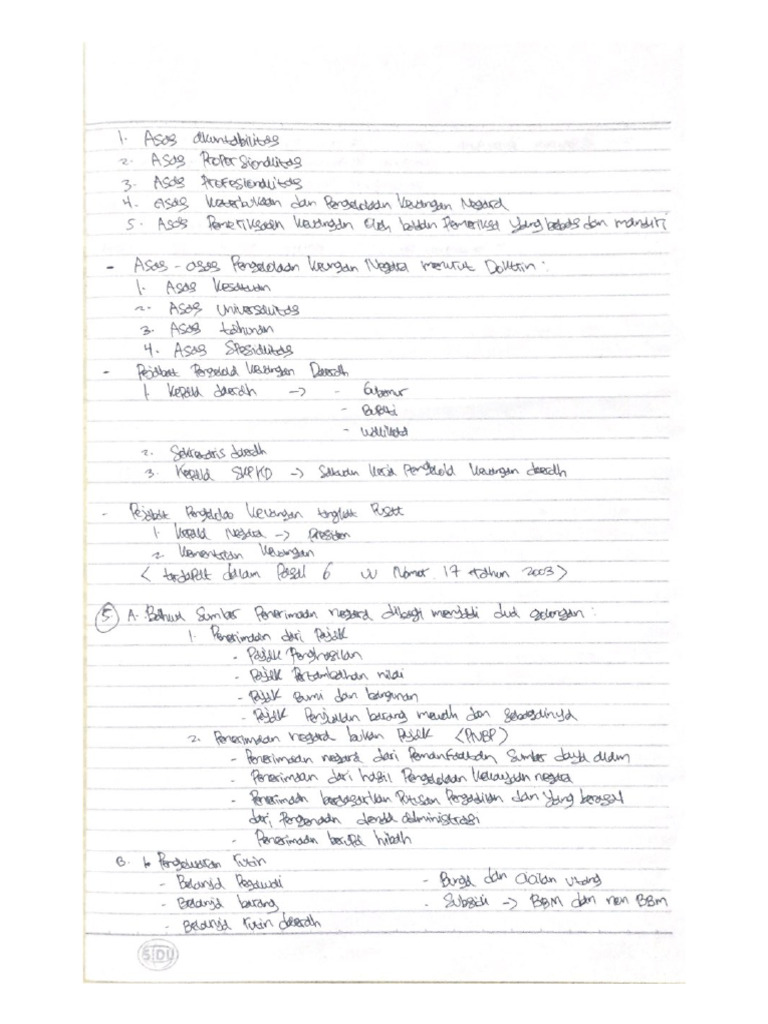 1. Asas akuntabilitas
2. Asas Proporsionalitas
3. Asas Profesionalitas
4. asas keterbukaan dan Pengelolaan keuangan Negara
5. Asas Pemeriksaan keuangan oleh badan Pemeriksa yang bebas dan mandiri
- Asas-asas Pengelolaan keuangan Negara menurut Doktrin :
1. Asas kesatuan
2. Asas universalitas
3. Asas tahunan
4. Asas Spesialitas
- Pejabat Pengelola keuangan Daerah
1. Kepala daerah -> - Gubernur
- Bupati
- Walikota
2. Sekretaris daerah
3. Kepala SKPKD -> Satuan kerja Pengelola keuangan daerah
- Pejabat Pengelola keuangan tingkat Pusat
1. Kepala Negara -> Presiden
2. Kementrian keuangan
< terdapat dalam Pasal 6 UU Nomor 17 tahun 2003 >
5 A. Bahwa Sumber Penerimaan negara dibagi menjadi dua golongan :
1. Penerimaan dari Pajak
- Pajak Penghasilan
- Pajak Pertambahan nilai
- Pajak Bumi dan bangunan
- Pajak Penjualan barang mewah dan sebagainya
2. Penerimaan negara bukan Pajak <PNBP>
- Penerimaan negara dari Pemanfaatan Sumber daya alam
- Penerimaan dari hasil Pengelolaan kekayaan negara
- Penerimaan berdasarkan Putusan Pengadilan dan yang berasal
dari Pengenaan denda administrasi
- Penerimaan berupa hibah
B. Pengeluaran rutin
- Belanja Pegawai - Bunga dan cicilan utang
- Belanja barang - Subsidi -> BBM dan non BBM
- Belanja rutin daerah
SIDU